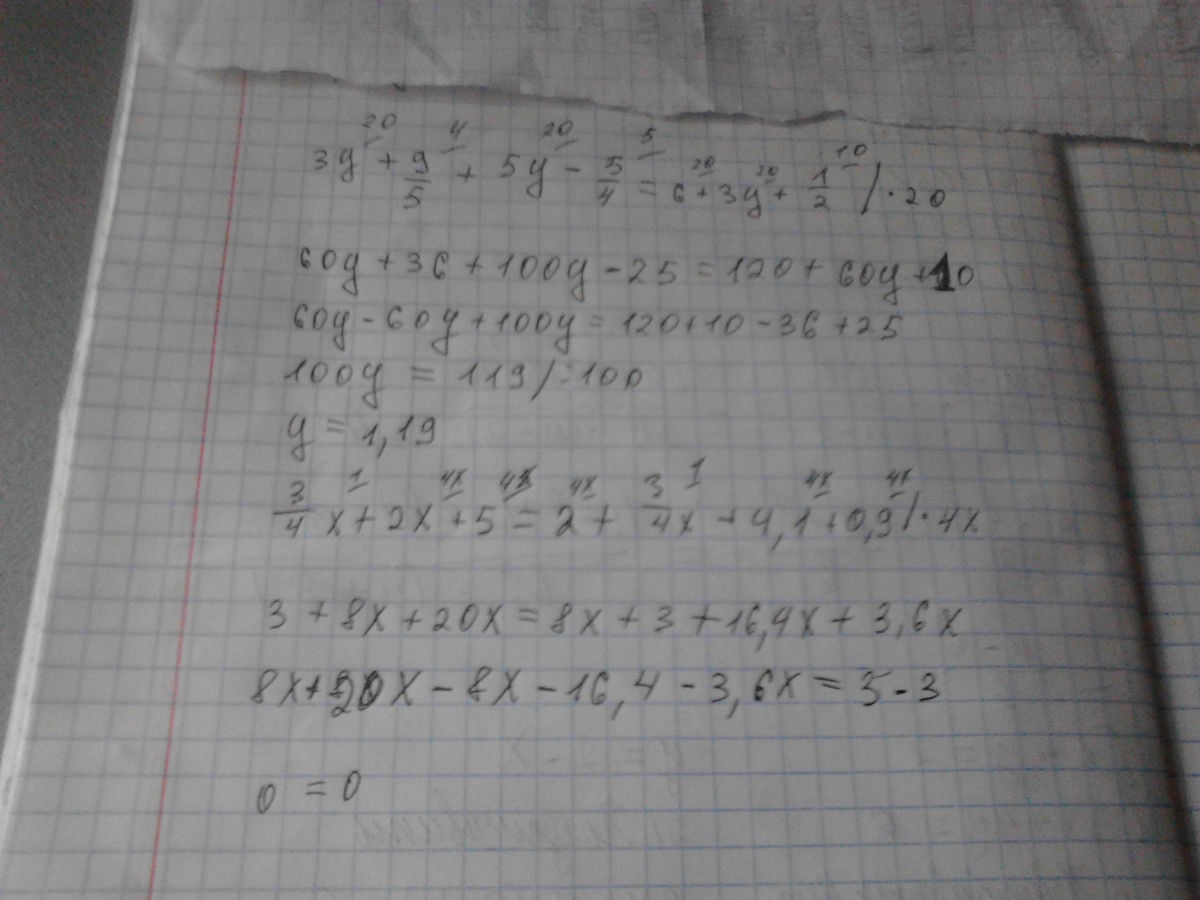 3y²⁰ + 9/5⁴ + 5y²⁰ - 5/4⁵ = 6²⁰ + 3y²⁰ + 1/2¹⁰ / · 20
60y + 36 + 100y - 25 = 120 + 60y + 10
60y - 60y + 100y = 120 + 10 - 36 + 25
100y = 119 / : 100
y = 1,19
3/4 x¹ + 2x⁴ˣ + 5⁴ˣ = 2⁴ˣ + 3/4x¹ + 4,1⁴ˣ + 0,9⁴ˣ / · 4x
3 + 8x + 20x = 8x + 3 + 16,4x + 3,6x
8x + 20x - 8x - 16,4 - 3,6x = 3 - 3
0 = 0